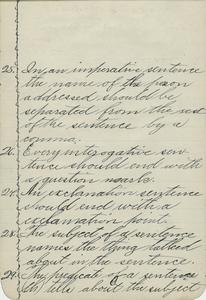 25. In an imperative sentence
the name of the person
addressed should be
separated from the rest
of the sentence by a
comma.
26. Every interogative sen-
tence should end with
a question mark.
27. An exclamation sentence
should end with a
exclamation point.
28. The subject of a sentence
names the thing talked
about in the sentence.
29. The predicate of a sentence
tells about the subject